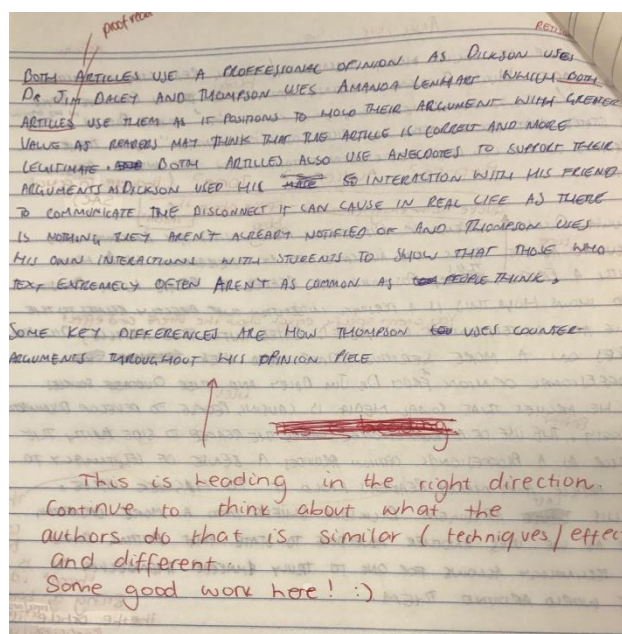 proof read
BOTH ARTICLES USE A PROFFESSIONAL OPINION AS DICKSON USES
DR JIM DALEY AND THOMPSON USES AMANDA LENHART WHICH BOTH
ARTICLES USE THEM AS IF POSITIONS TO HOLD THEIR ARGUMENT WITH GREATER
VALUE AS READERS MAY THINK THAT THE ARTICLE IS CORRECT AND MORE
LEGITIMATE. BOTH ARTICLES ALSO USE ANECDOTES TO SUPPORT THEIR
ARGUMENTS AS DICKSON USED HIS INTERACTION WITH HIS FRIEND
TO COMMUNICATE THE DISCONNECT IT CAN CAUSE IN REAL LIFE AS THERE
IS NOTHING THEY AREN'T ALREADY NOTIFIED OF AND THOMPSON USES
HIS OWN INTERACTIONS WITH STUDENTS TO SHOW THAT THOSE WHO
TEXT EXTREMELY OFTEN AREN'T AS COMMON AS PEOPLE THINK.
SOME KEY DIFFERENCES ARE HOW THOMPSON USES COUNTER-
ARGUMENTS THROUGHOUT HIS OPINION PIECE
This is heading in the right direction.
Continue to think about what the
authors do that is similar (techniques/effec
and different
Some good work here! :)